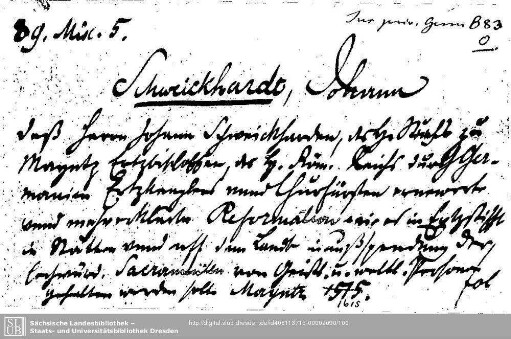 89. Misc. 5.
Jus priv. Germ B 83
0.
Schweickhardt, Johann
Deß Herrn Johann Schweickharden, des H. Stuhls zu
Mayntz Ertzbischoffen, des H. Röm. Reichs durch Ger-
manien Ertzkanzlers unnd Churfürsten erneuerte
unnd mehr erklerte Reformation wie es im Ertzstifft
in Stätten unnd uff dem Lande in außspendung der
hochwürd. Sacramenten von Geistl. u. weltl. Personen
gehalten werden solle Mayntz 1615. fol
1615
SLUB
Sächsische Landesbibliothek –
Staats- und Universitätsbibliothek Dresden